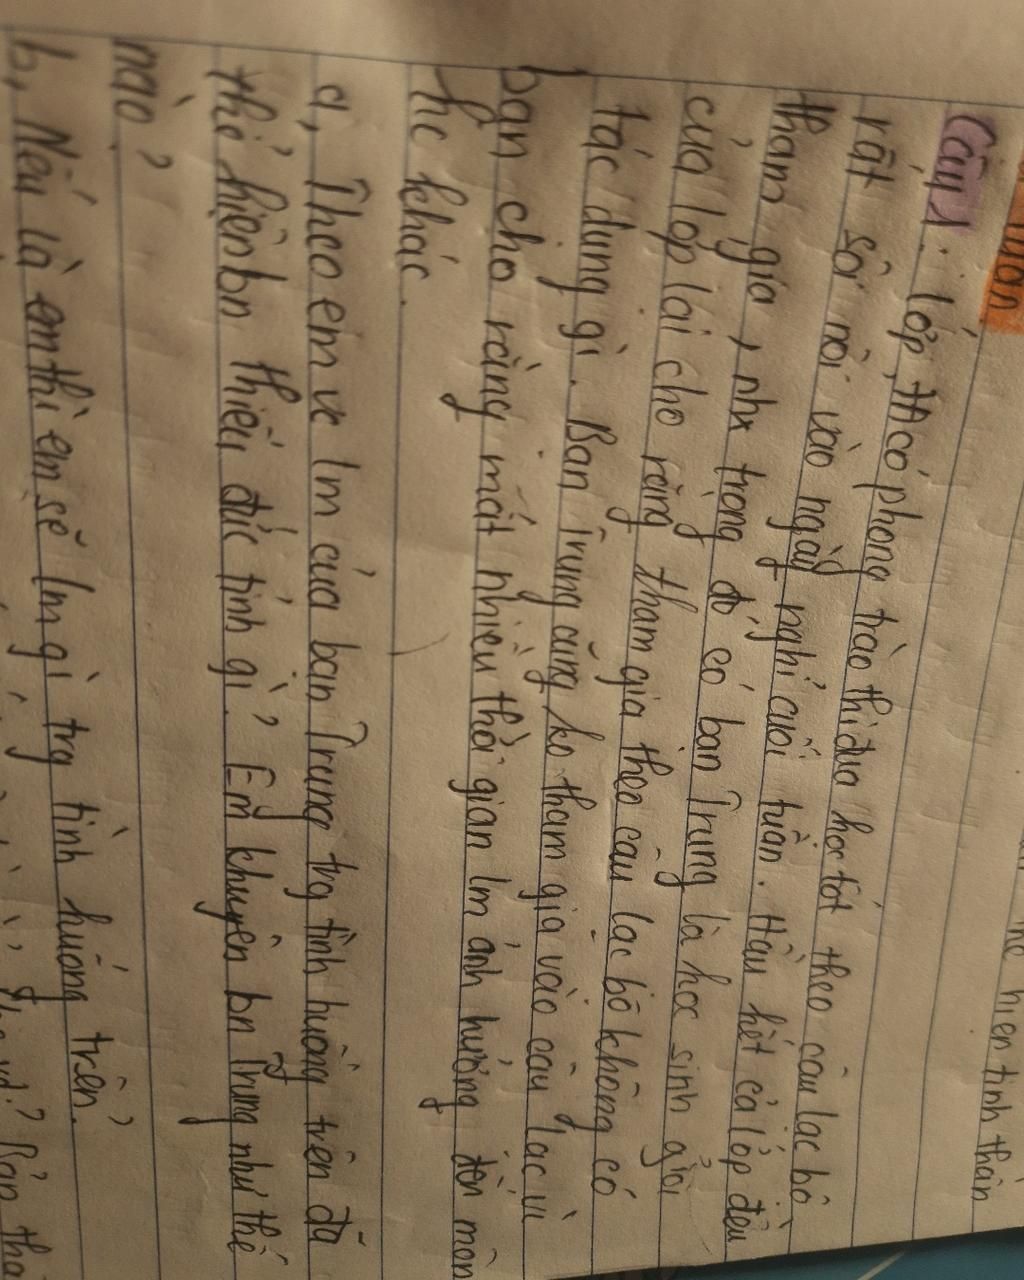 hiện tinh thần
Câu 1: lớp 7A có phong trào thi đua học tốt theo câu lạc bộ
rất sôi nổi vào ngày nghỉ cuối tuần. Hầu hết cả lớp đều
tham gia, nhx trong đó có bạn Trung là học sinh giỏi
của lớp lại cho rằng tham gia theo câu lạc bộ không có
tác dụng gì. Bạn Trung cũng ko tham gia vào câu lạc vì
bạn cho rằng mất nhiều thời gian lm ảnh hưởng đến môn
hc khác.
a, Theo em vc lm của bạn Trung trg tình huống trên đã
thể hiện bn thiếu đức tính gì? Em khuyên bn Trung như thế
nào?
b, Nếu là em thì em sẽ lm gì trg tình huống trên?